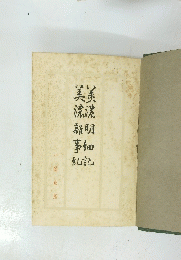 美濃明細記
美濃雑事紀